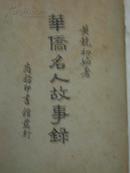 黄競初編著
華僑名人故事錄
商務印書館發行